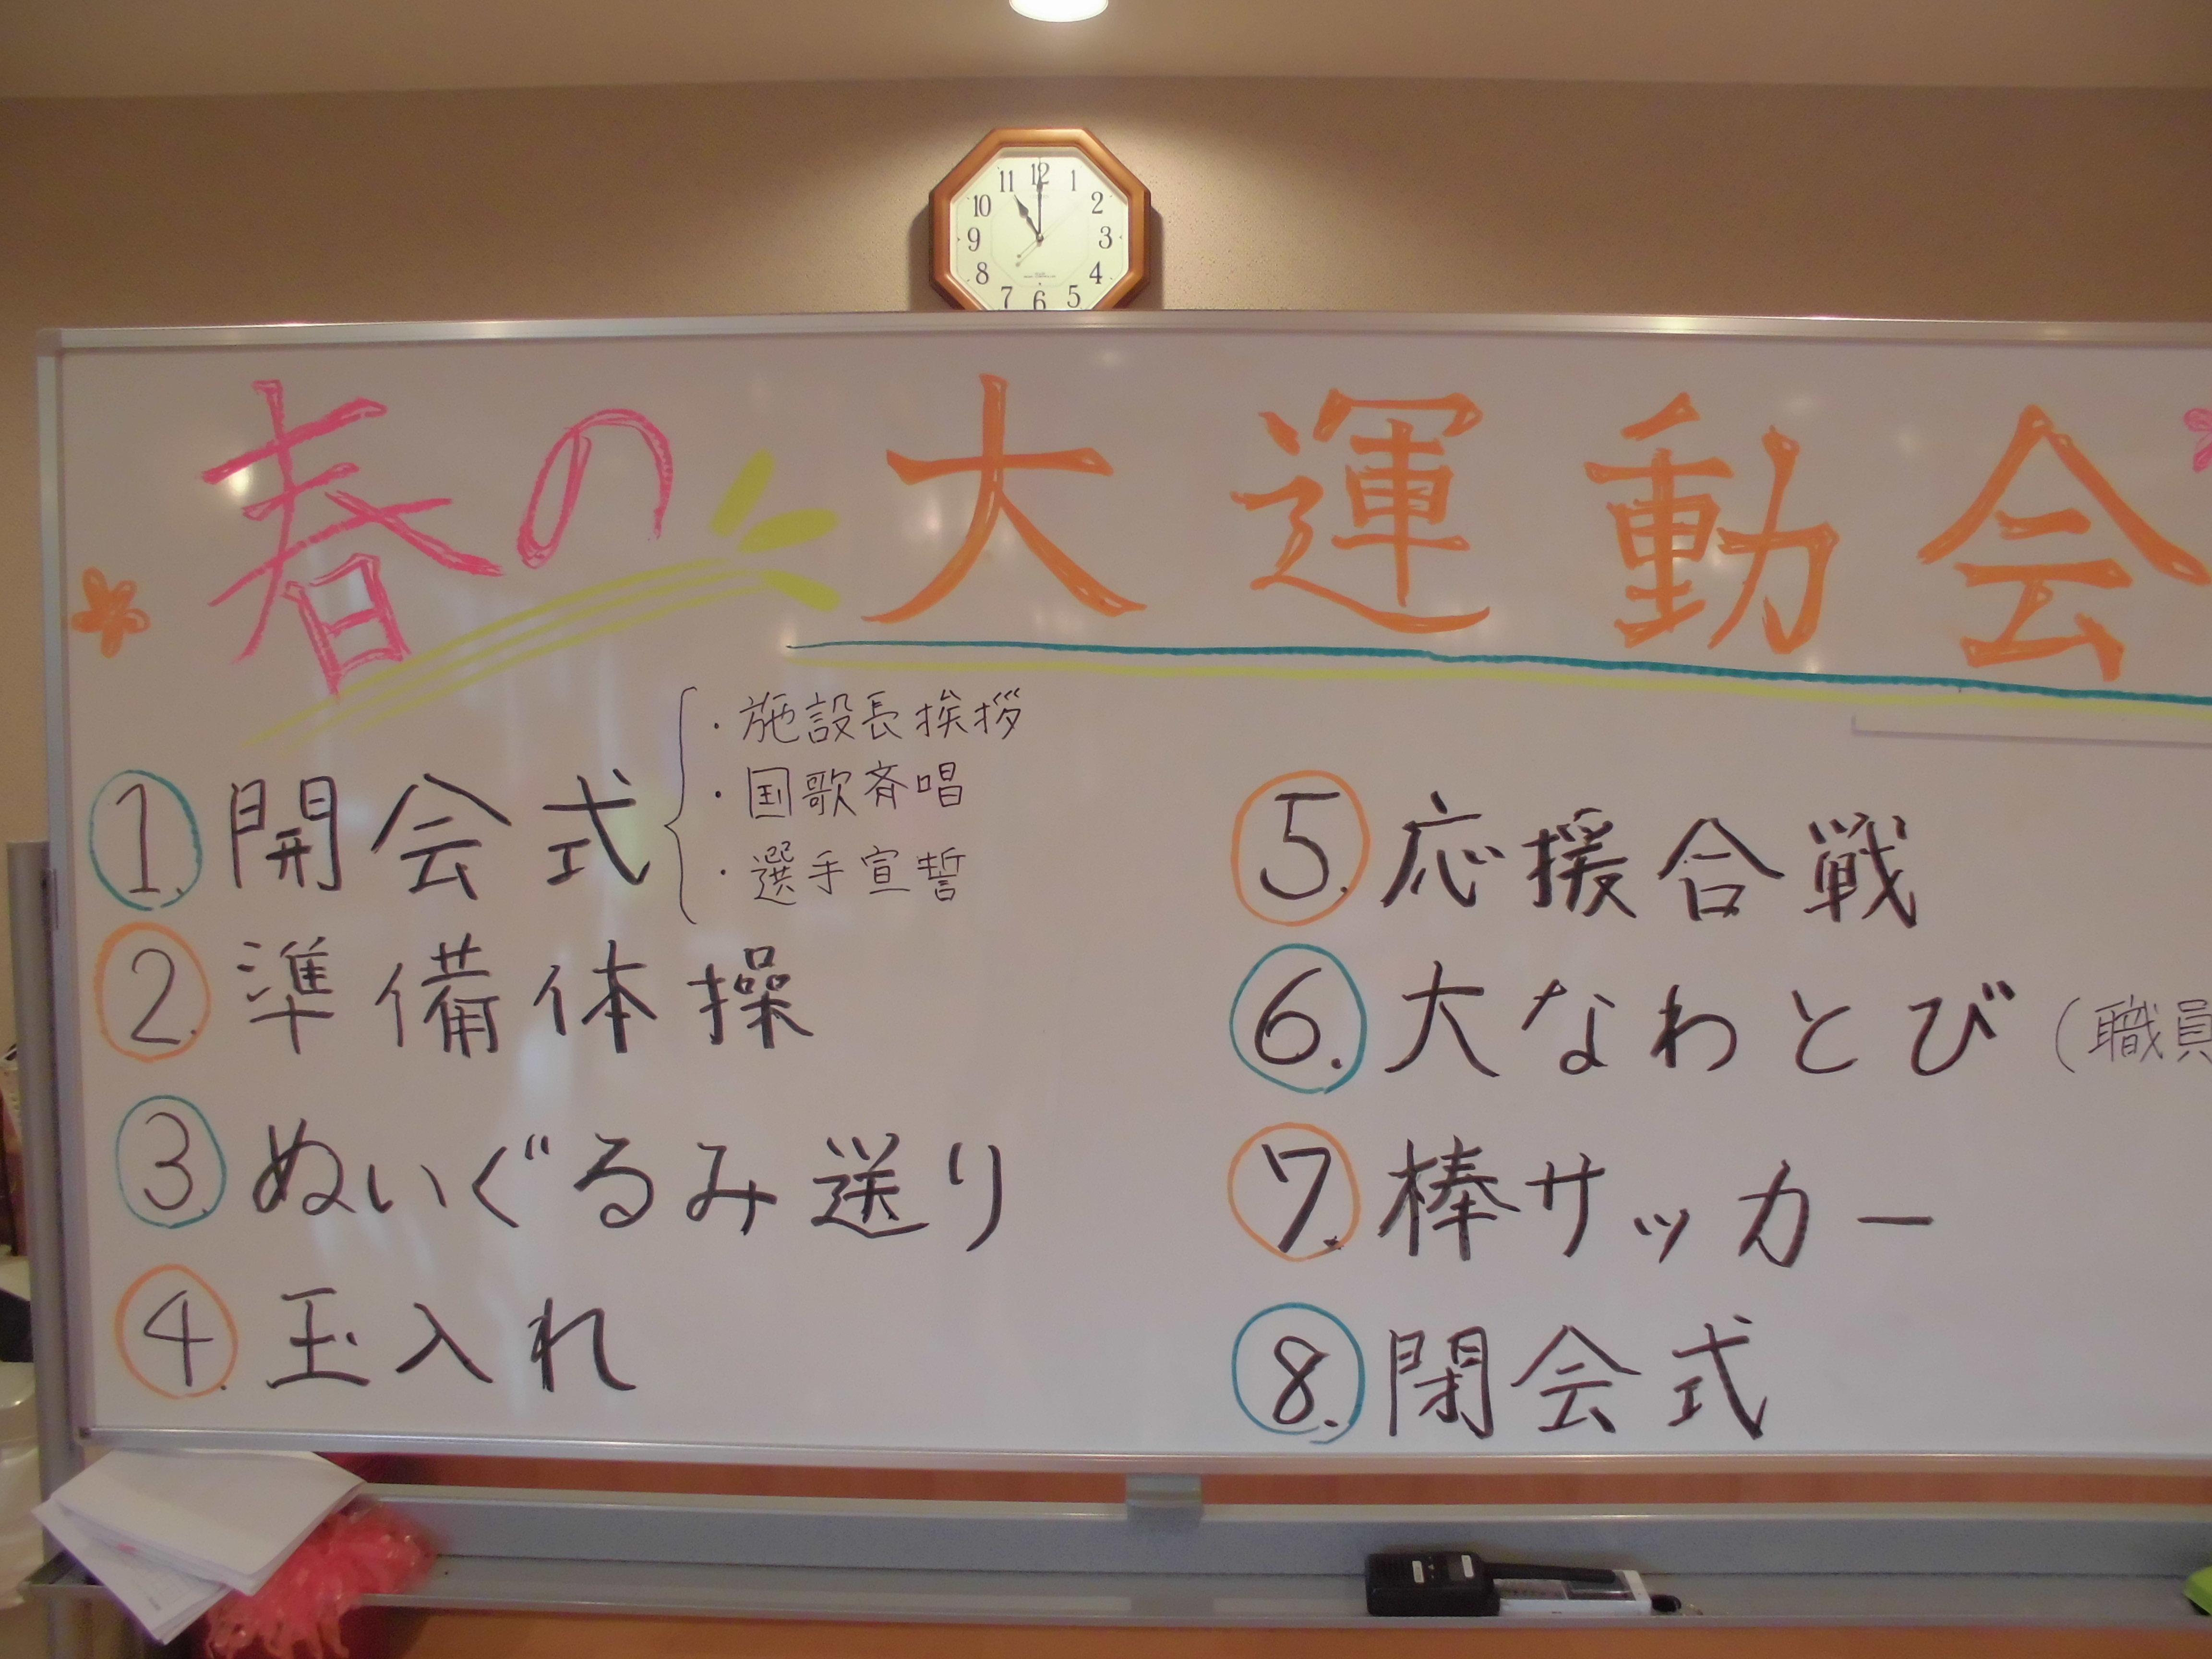 12
11 1
10 2
9 3
8 4
7 6 5
春の大運動会
1. 開会式
・施設長挨拶
・国歌斉唱
・選手宣誓
2. 準備体操
3. ぬいぐるみ送り
4. 玉入れ
5. 応援合戦
6. 大なわとび (職員
7. 棒サッカー
8. 閉会式